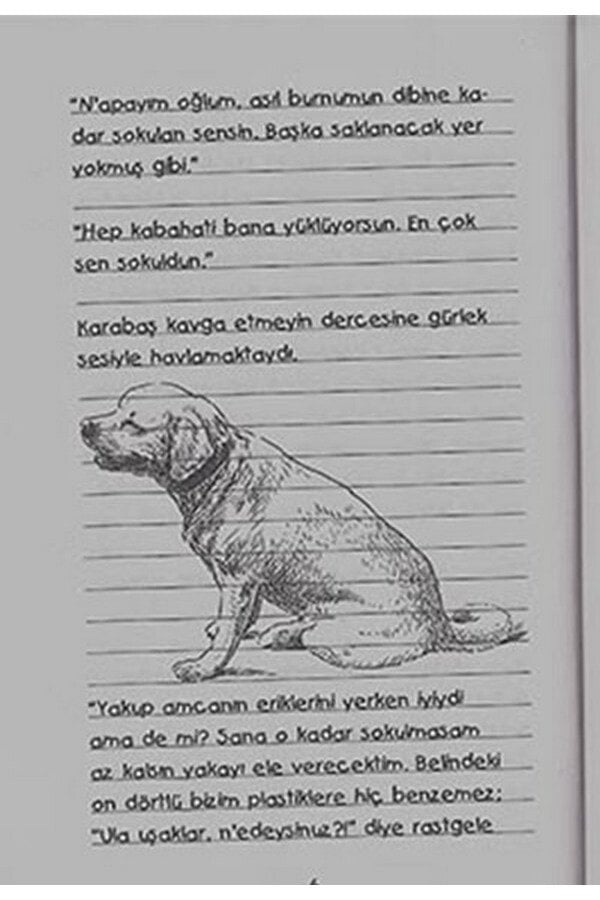 "N'apayım oğlum, asıl burnumun dibine ka-
dar sokulan sensin. Başka saklanacak yer
yokmuş gibi."
"Hep kabahati bana yüklüyorsun. En çok
sen sokuldun."
Karabaş kavga etmeyin dercesine gürlek
sesiyle havlamaktaydı.
"Yakup amcanın eriklerini yerken iyiydi
ama de mi? Sana o kadar sokulmasam
az kalsın yakayı ele verecektim. Belindeki
on dörtlü bizim plastiklere hiç benzemez;
"Ula uşaklar, n'edeysinuz?!" diye rastgele